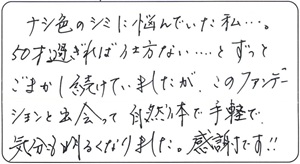 ナシ色のシミに悩んでいた私…。
50才過ぎれば仕方ない……とずっと
ごまかし続けていましたが、このファンデー
ションと出会って自然体で手軽で、
気分も明るくなりました。感謝です!!